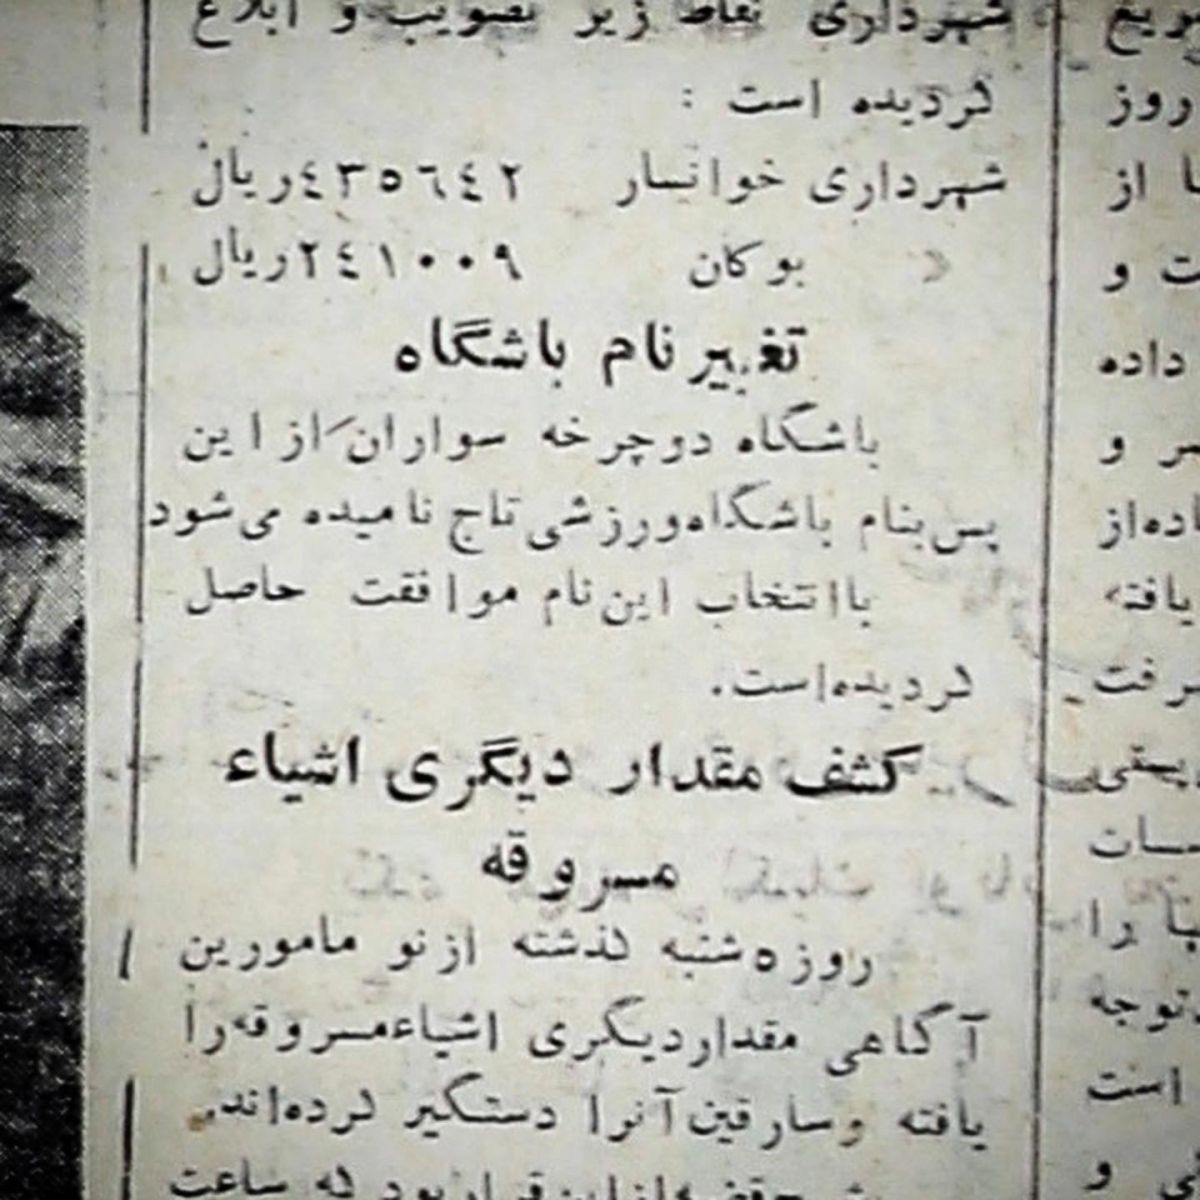 شهرداری نقاط زیر تصویب و ابلاغ
گردیده است :
شهرداری خوانسار ٤٣٥٦٤٢ریال
« بوکان ٢٤١٠٠٩ریال
تغییر نام باشگاه
باشگاه دوچرخه سواران از این
پس بنام باشگاه ورزشی تاج نامیده می شود
با انتخاب این نام موافقت حاصل
گردیده است.
کشف مقدار دیگری اشیاء
مسروقه
روز ه شنبه گذشته از نو مامورین
آگاهی مقدار دیگری اشیاء مسروقه را
یافته و سارقین آنرا دستگیر کرده اند.
قضیه از این قرار بود که ساعت
روز
ا از
ت و
داده
سر و
اده از
یافته
رفت
یستی
سات
را
توجه
است
و